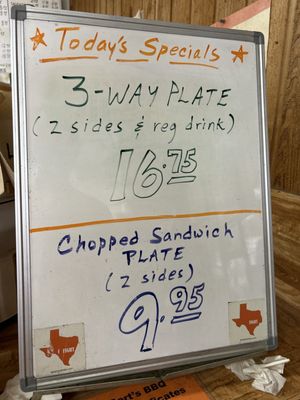 Today's Specials
3-WAY PLATE
(2 sides & reg drink)
16.75
Chopped Sandwich
PLATE
(2 sides)
9.95
BBQ